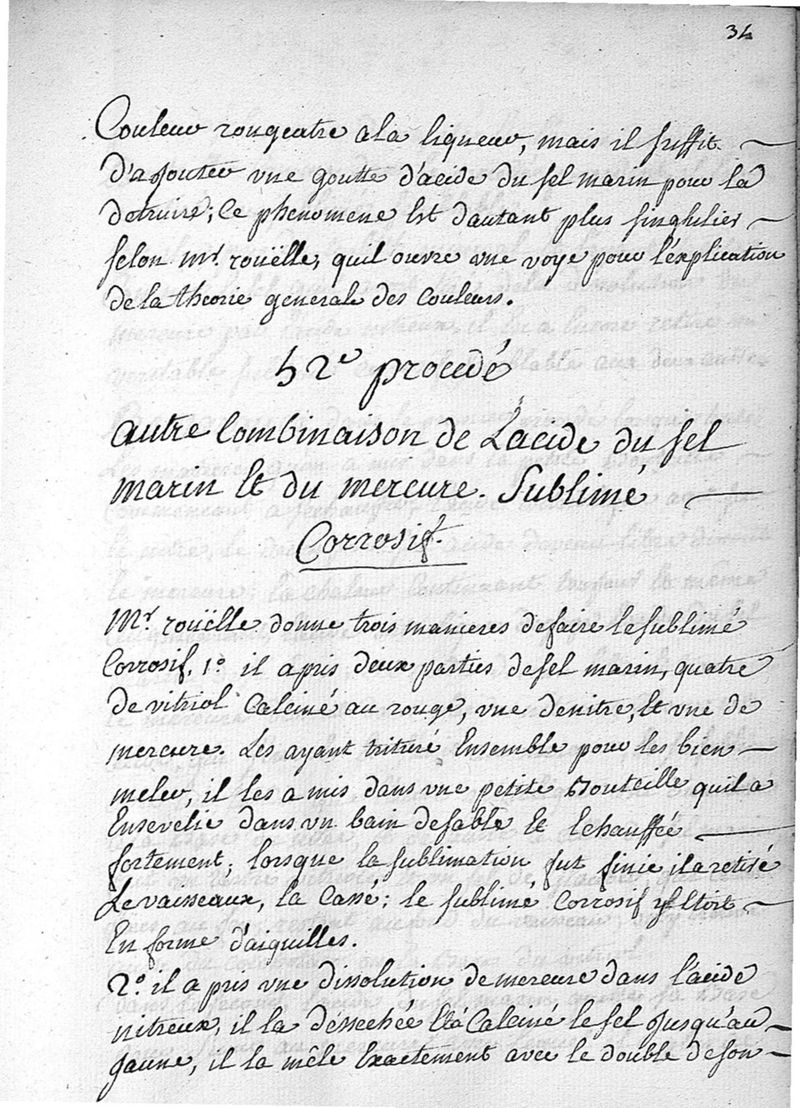 34
Couleur rougeatre a la liqueur, mais il suffit
D'ajouter vne goutte d'acide du sel marin pour la
detruire; Ce phenomene Est d'autant plus singhulier
selon Mr. rouëlle, quil ouvre vne voye pour l'explication
de la theorie generale des Couleurs.
52e procedé
autre Combinaison de L'acide du sel
marin Et du mercure. Sublimé
Corrosif.
Mr. rouëlle donne trois manieres de faire le sublimé
Corrosif. 1o. il a pris deux parties de sel marin, quatre
de vitriol Calciné au rouge, vne de nitre, Et vne de
mercure. Les ayant trituré Ensemble pour les bien
meler, il les a mis dans vne petite Bouteille quil a
Ensevelie dans vn bain de sable Et Echauffé
fortement; lorsque la sublimation fut finie il a retiré
Le vaisseaux, la Cassé; le sublimé Corrosif y Etoit
En forme d'aiguilles.
2o. il a pris vne dissolution de mercure dans l'acide
nitreux, il la déssechée Et a Calciné le sel jusqu'au
jaune, il la mêle Exactement avec le double de son